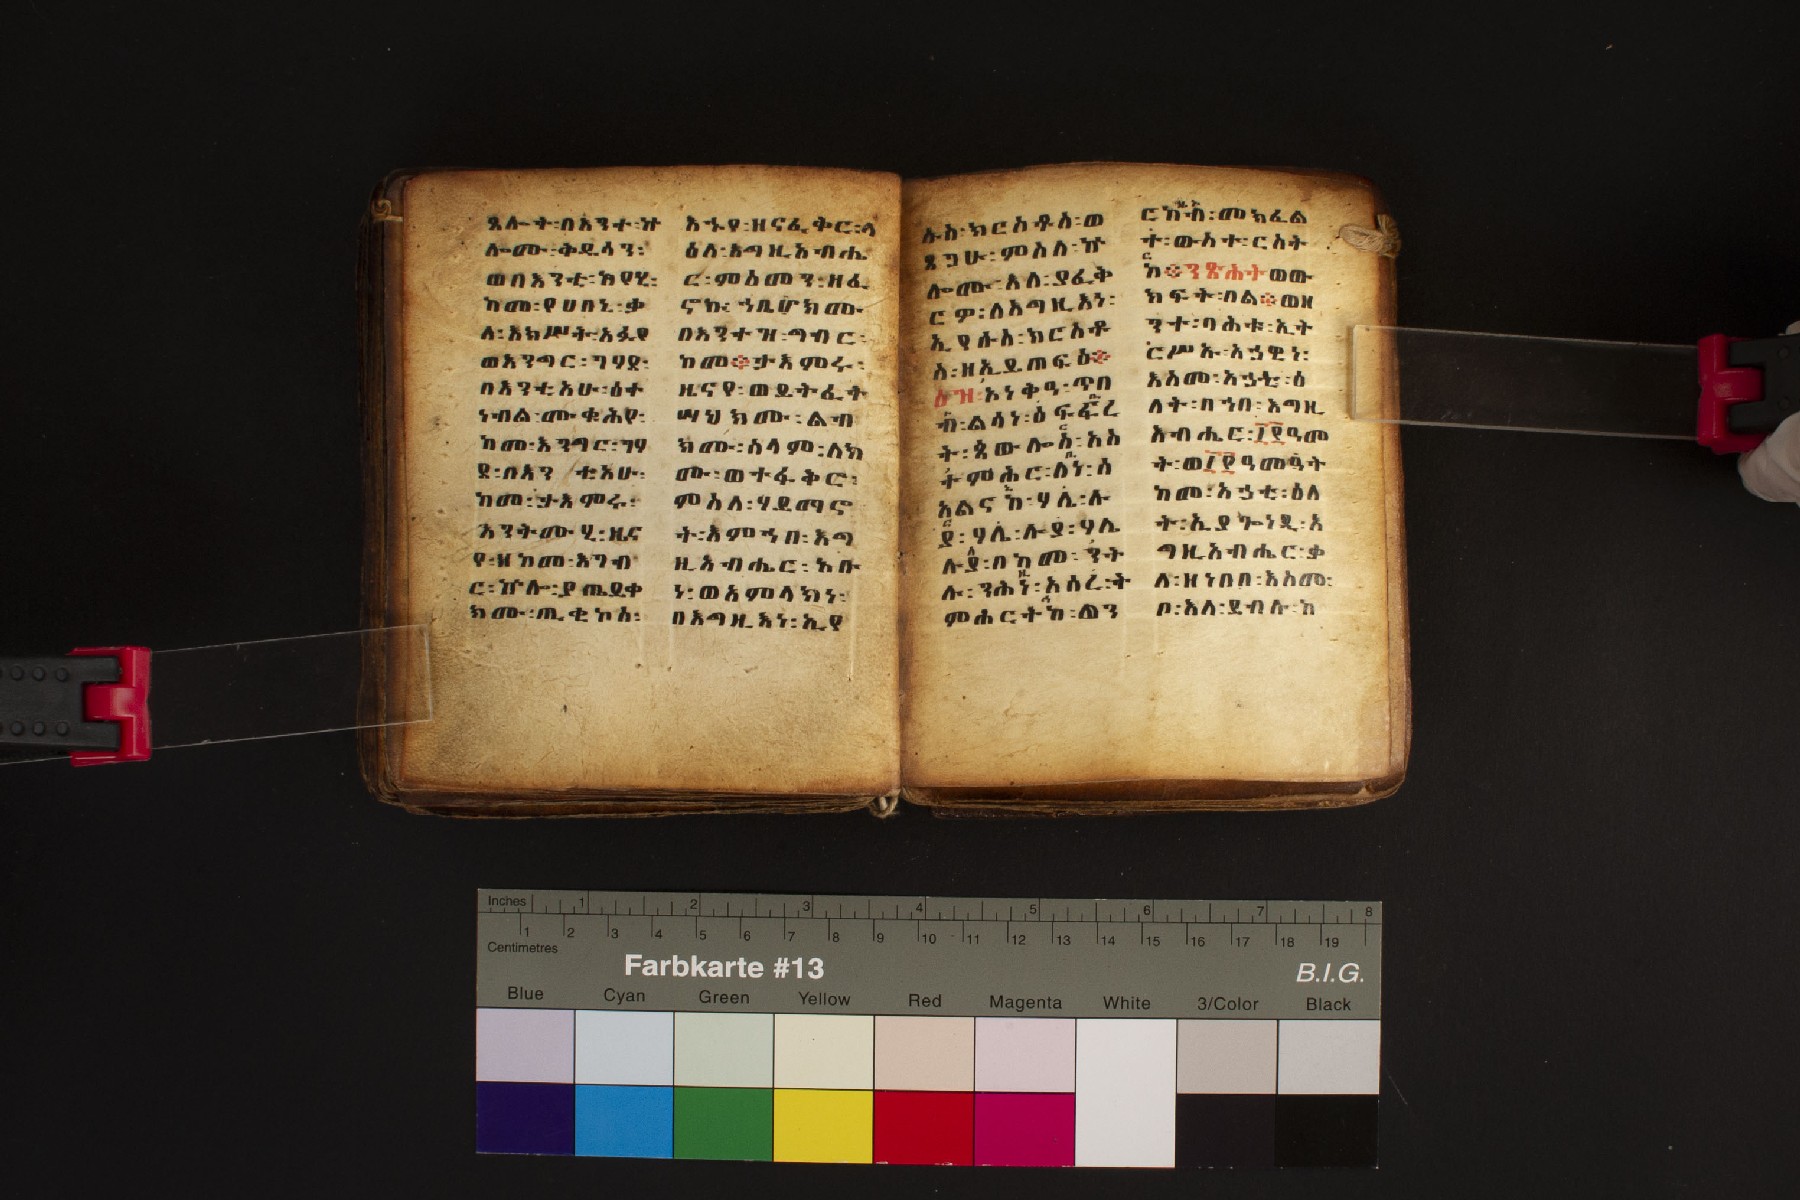 ጸሎት፡በእንተ፡ኵ
ሎሙ፡ቅዱሳን፡
ወበእንቲ፡አየሂ፡
ከመ፡የሀበኒ፡ቃ
ለ፡እክሥት፡አፉየ
ወእንግር፡ገሃደ፡
በእንቲአሁ፡ዕቀ
ነብል፡ሙቁሕየ፡
ከመ፡እንግር፡ገሃ
ደ፡በእን ቲአሁ፡
ከመ፡ታእምሩ፡
አንትሙሂ፡ዜና
የ፡ዘከመ፡እገብ
ር፡ኵሎ፡ያጤይቀ
ክሙ፡ጢቂኮስ፡
እኁየ፡ዘናፈቅር፡ላ
ዕለ፡እግዚአብሔ
ር፡ምእመን፡ዘፈ
ኖኩ፡ኀቤክሙ
በእንተዝ፡ግብር፡
ከመ፡ታእምሩ፡
ዜናየ፡ወይትፈት
ሣህክሙ፡ልብ
ክሙ፡ሰላም፡ለክ
ሙ፡ወተፋቅር፡
ምስለ፡ሃይማኖ
ት፡እምኀበ፡እግ
ዚአብሔር፡አቡ
ነ፡ወአምላክነ፡
በእግዚእነ፡ኢየ
ሱስ፡ክርስቶስ፡ወ
ጸጋሁ፡ምስለ፡ኵ
ሎሙ፡እለ፡ያፈቅ
ርዎ፡ለእግዚእነ፡
ኢየሱስ፡ክርስቶ
ስ፡ዘኢይጠፍዕ
ዕዝ፡አነቅዓ፡ጥበ
ብ፡ልሳነ፡ዕፍረ
ት፡ጸውሎስ፡አስ
ተምሕር፡ለነ፡ሰ
አልናከ፡ሃሌ፡ሉ
ያ፡ሃሌ፡ሉያ፡ሃሌ
ሉያ፡በከመ፡ንት
ሉ፡ንሕነ፡አሰረ፡ት
ምሕርትከ፡ልን
ርከብ፡መክፈል
ት፡ውስተ፡ርስት
ከ፨ንጽሕትወው
ክፍት፡በል፨ወዘ
ንተ፡ባሕቱ፡ኢት
ርሥኡ፡አኃዊነ፡
እስመ፡አኃቲ፡ዕ
ለት፡በኀበ፡እግዚ
አብሔር፡፲፻ዓመ
ት፡ወ፲፻ዓመዓት
ከመ፡አኃቲ፡ዕለ
ት፡ኢያጐነዲ፡እ
ግዚአብሔር፡ቃ
ለ፡ዘነበበ፡እስመ፡
ቦ፡እለ፡ይብሉ፡ከ
Inches 1 2 3 4 5 6 7 8
1 2 3 4 5 6 7 8 9 10 11 12 13 14 15 16 17 18 19
Centimetres
Farbkarte #13
B.I.G.
Blue Cyan Green Yellow Red Magenta White 3/Color Black